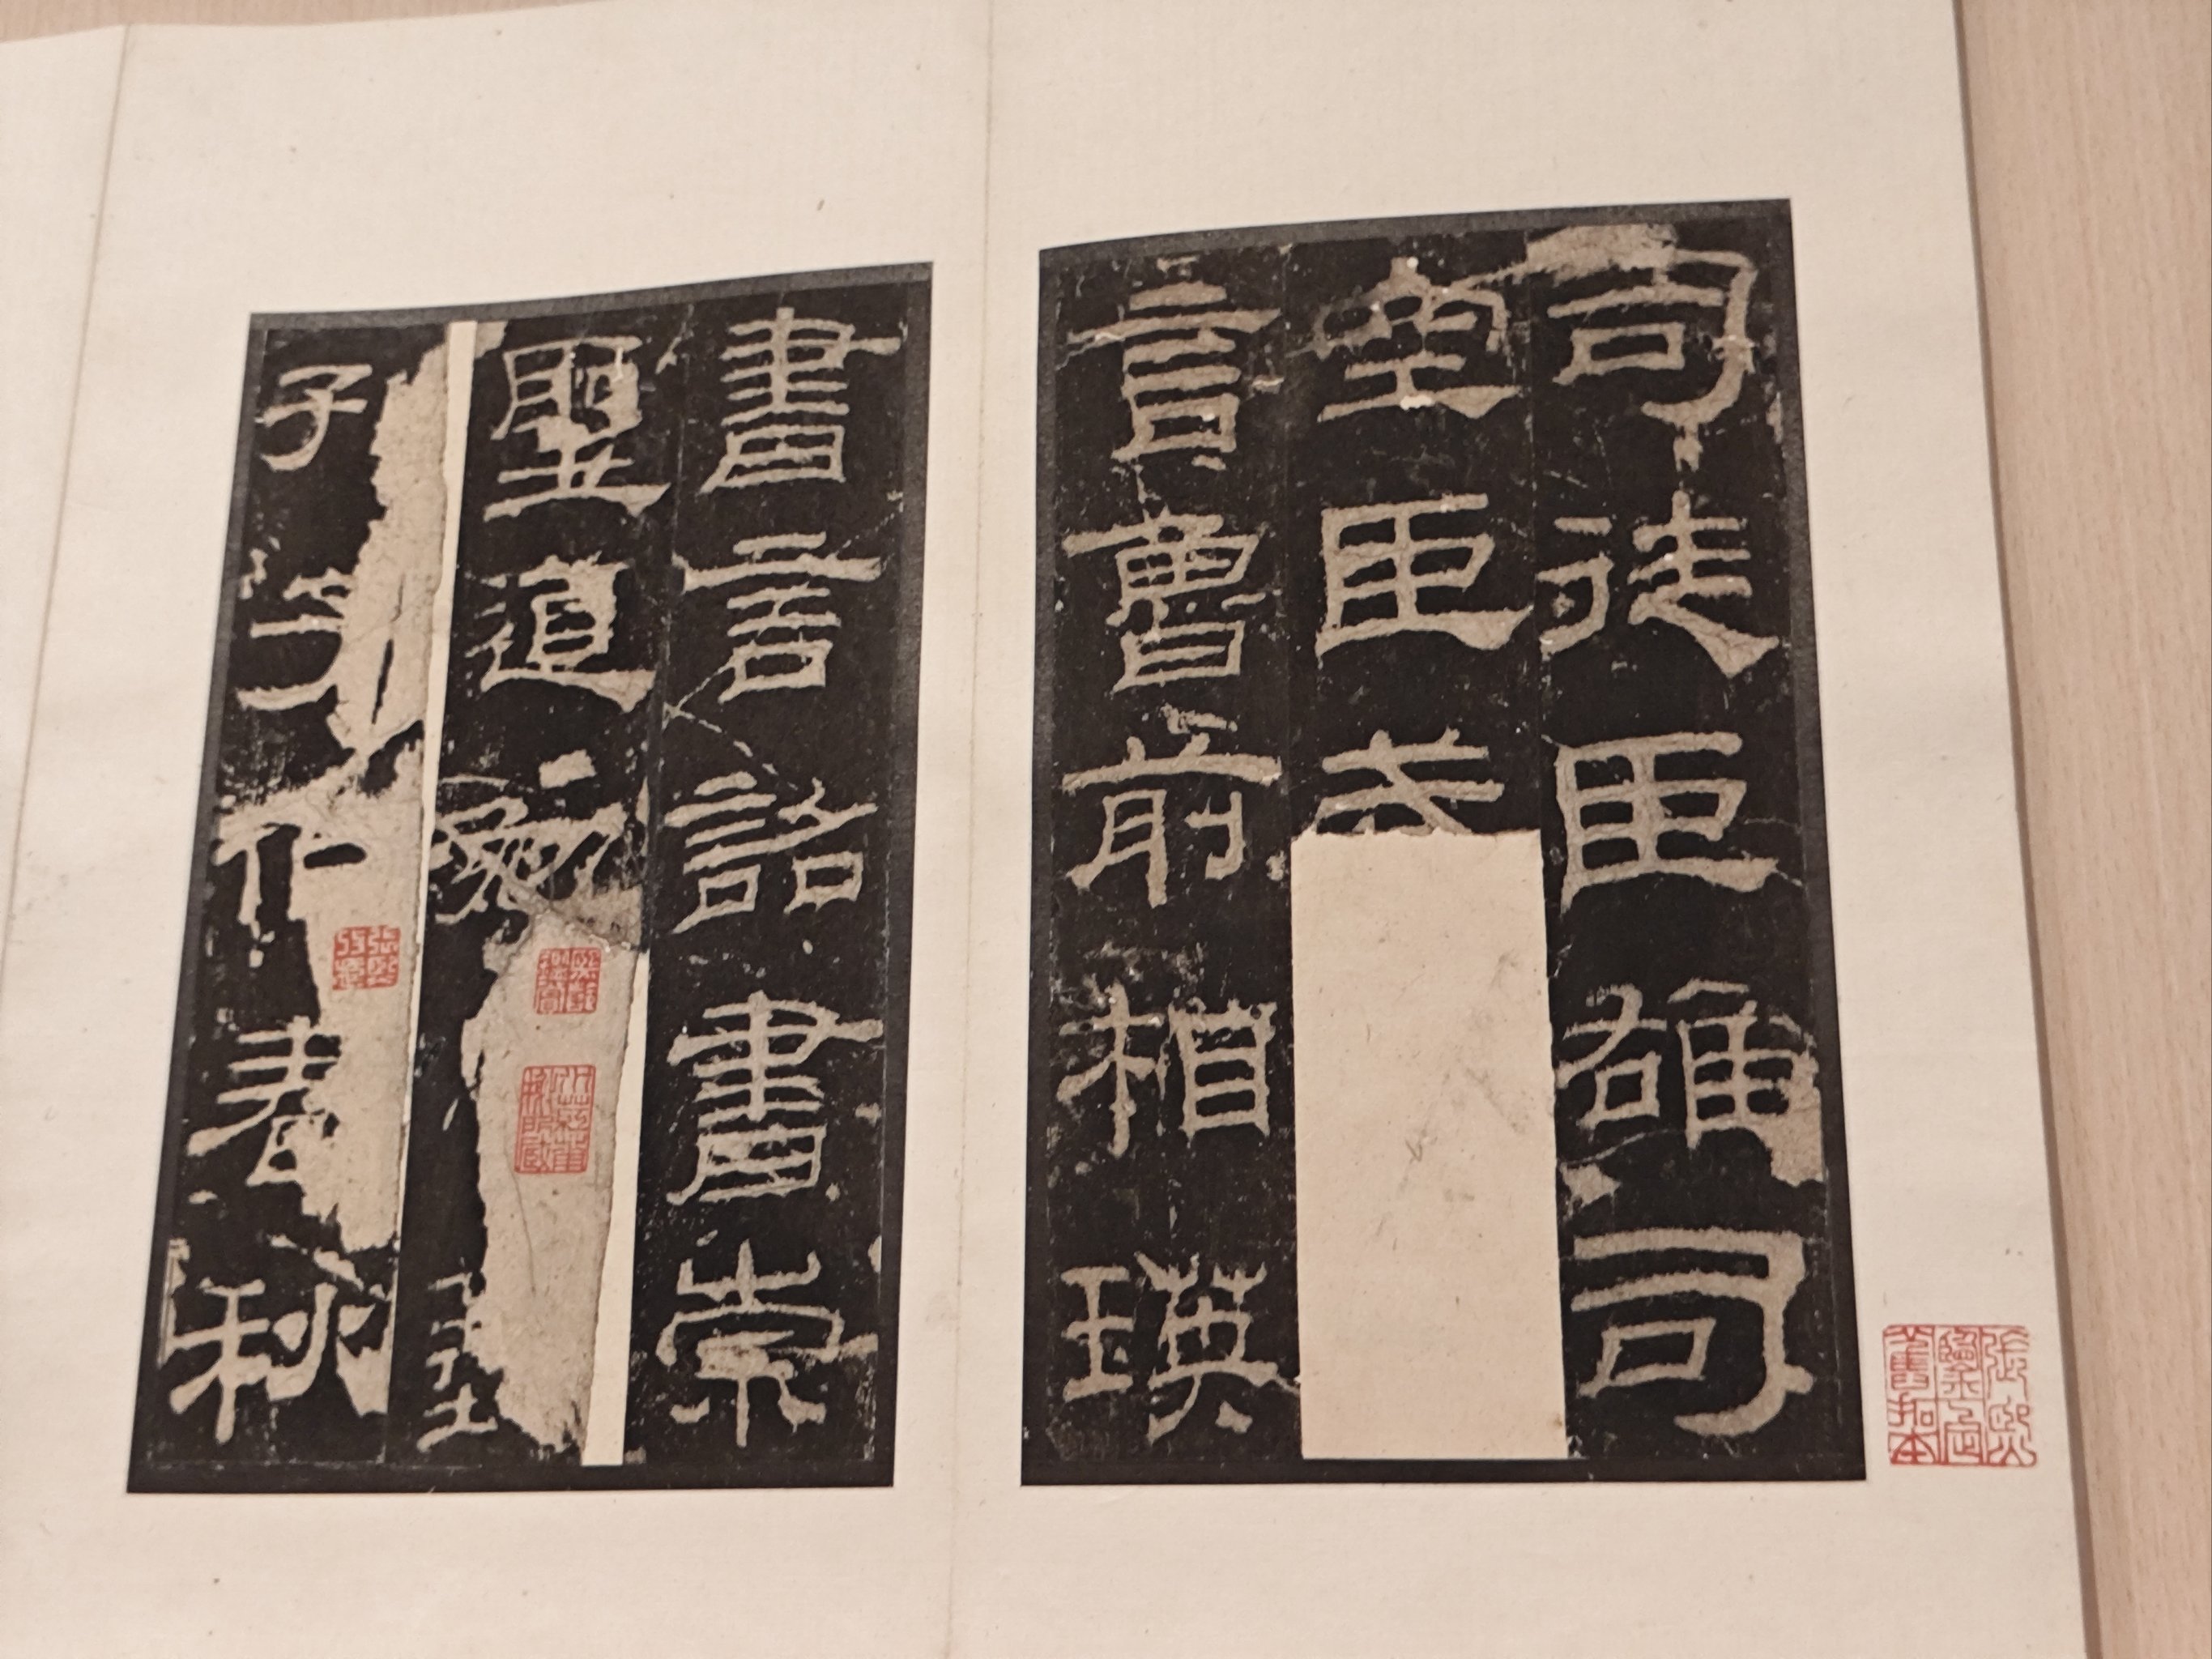 司徒臣雄司
空臣戒
言魯前相瑛
書言詔書崇
聖道
孔子作春秋